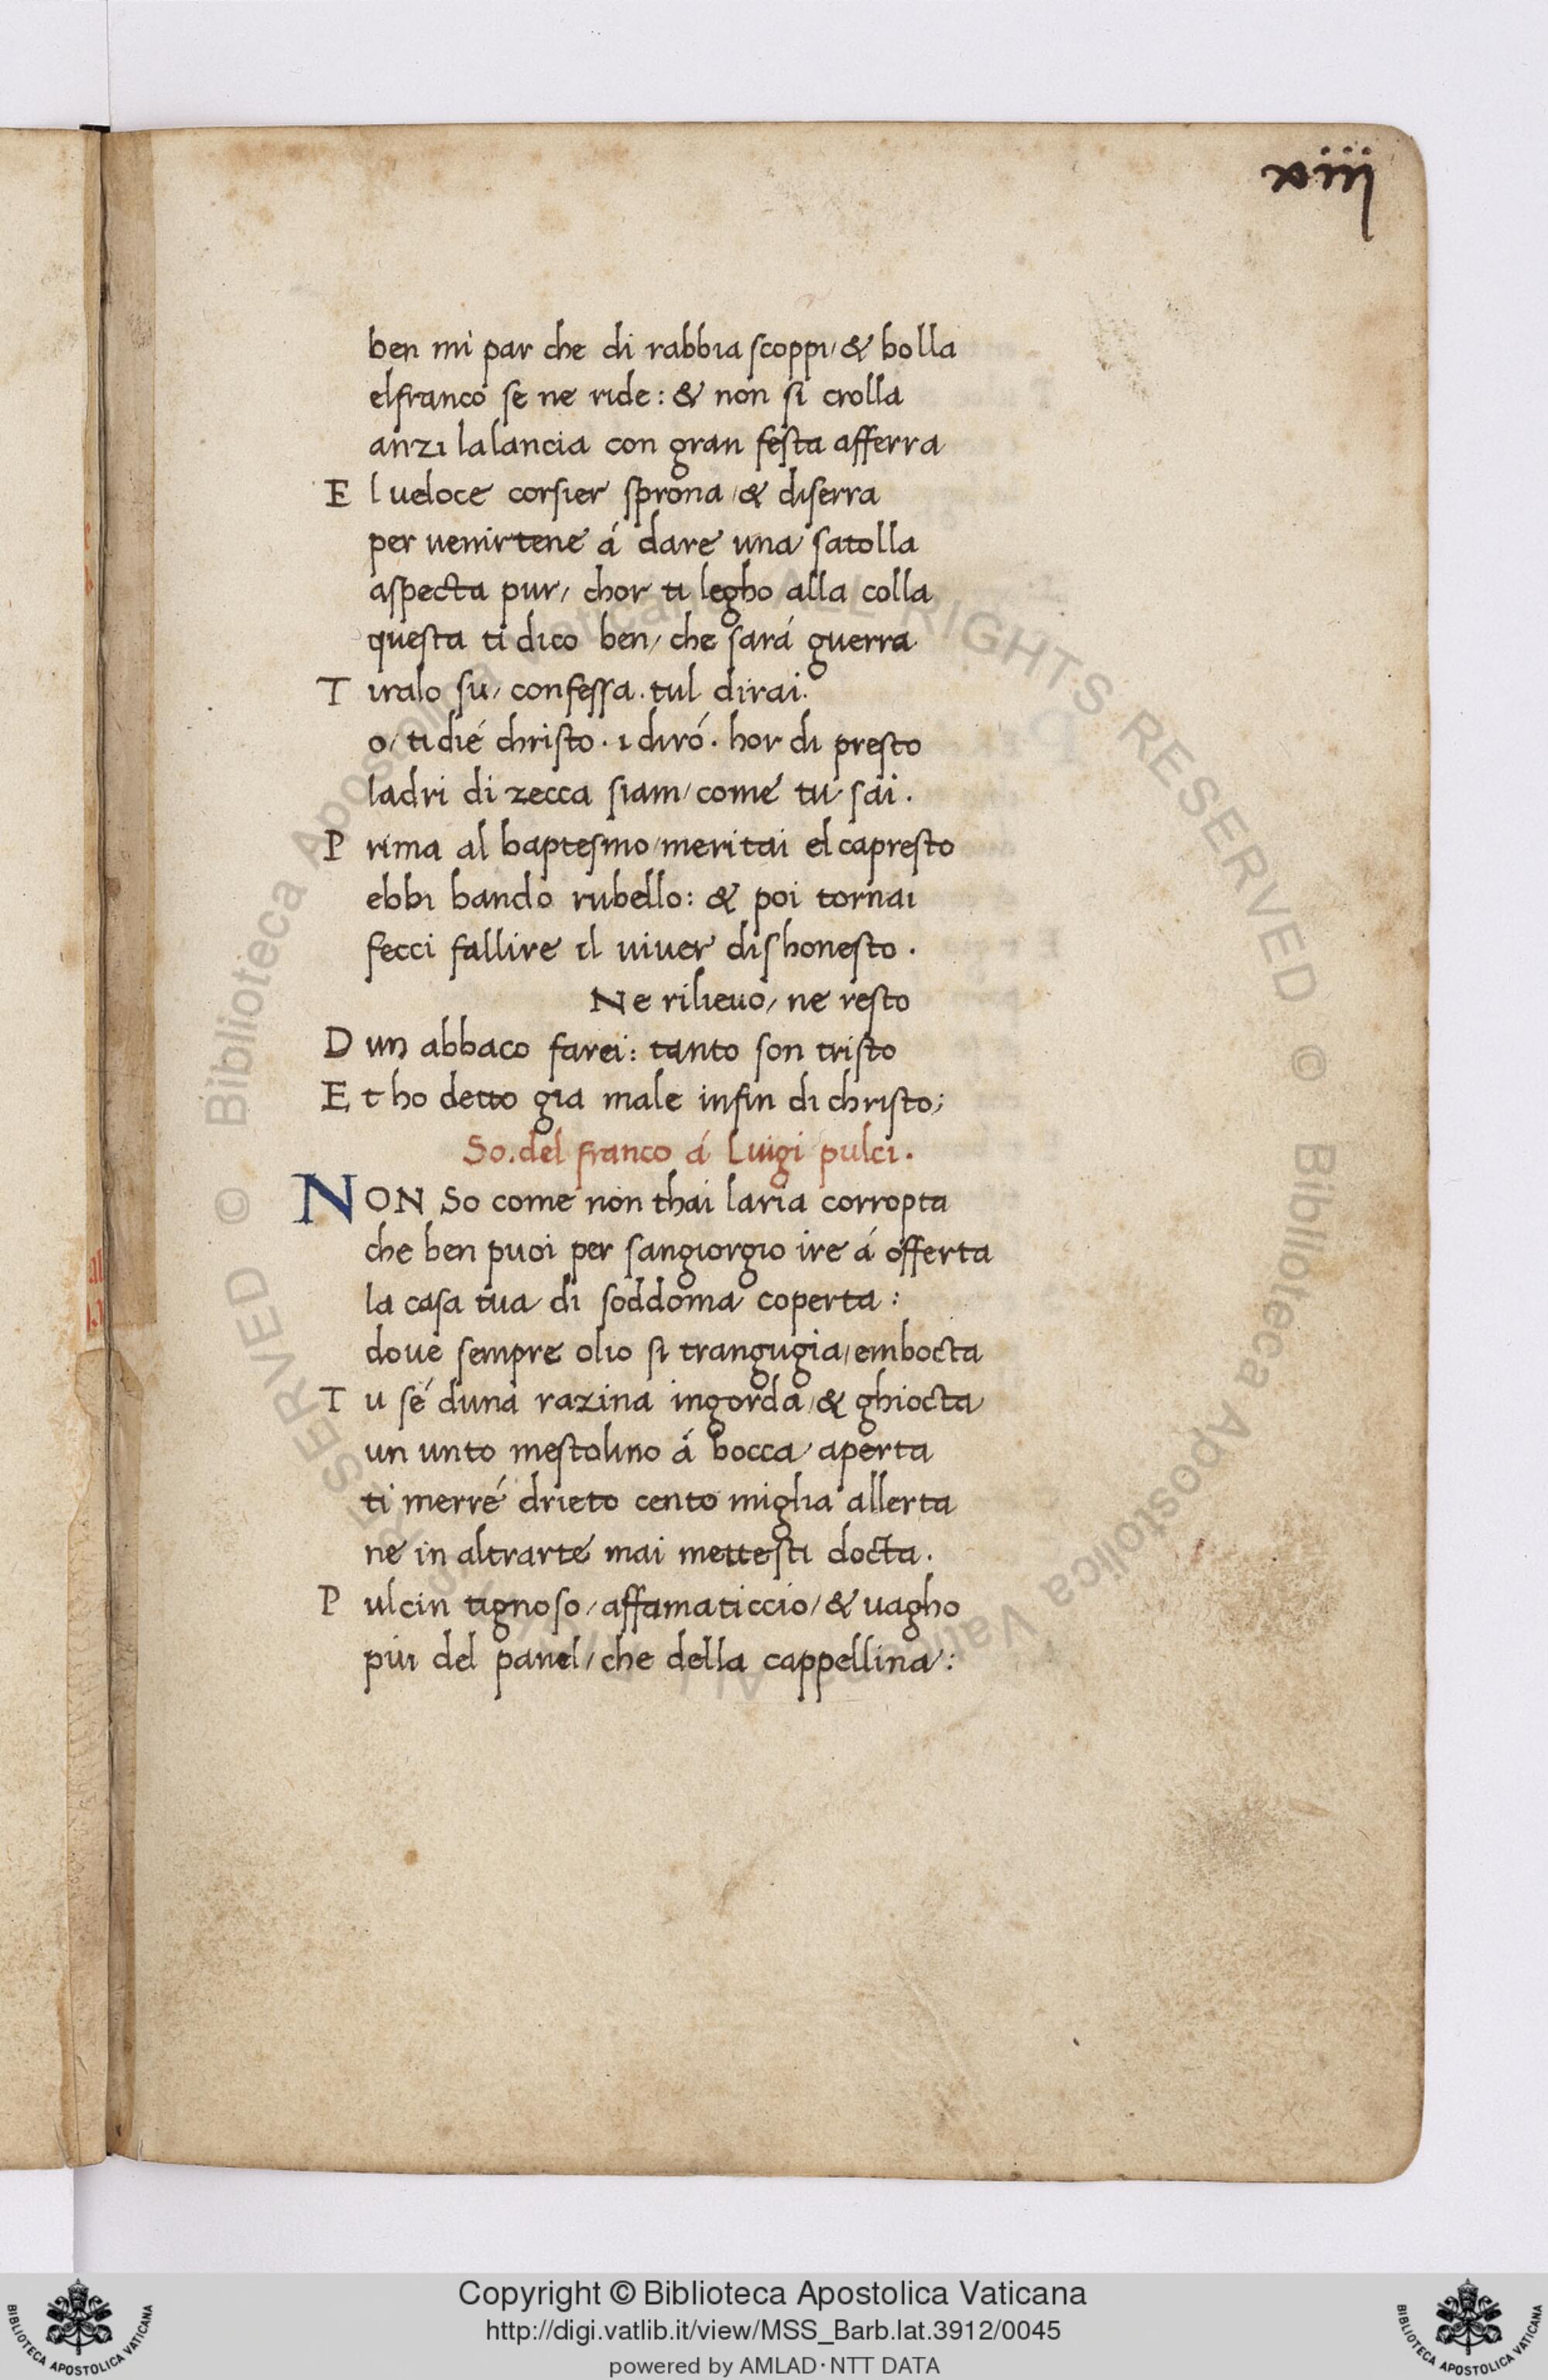 xiiij
ben mi par che di rabbia scoppi/& bolla
elfranco se ne ride: & non si crolla
anzi lalancia con gran festa afferra
E l ueloce corsier sprona/& diserra
per uenirtene á dare una satolla
aspecta pur/ chor ti legho alla colla
questa ti dico ben/ che sará guerra
T iralo su/ confessa. tul dirai.
o/ tidié christo. i diró. hor di presto
ladri di zecca siam/come tu sai.
P rima al baptesmo/meritai elcapresto
ebbi bando rubello: & poi tornai
fecci fallire il uiuer dishonesto.
Ne rilieuo/ ne resto
D un abbaco farei: tanto son tristo
E t ho detto gia male infin di christo;
So. del franco á Luigi pulci.
NON So come non thai laria corropta
che ben puoi per sangiorgio ire á offerta
la casa tua di soddoma coperta:
doue sempre olio si trangugia/embocta
T u sé duna razina ingorda/& ghiocta
un unto mestolino á bocca aperta
ti merré drieto cento miglia allerta
ne in altrarte mai mettesti docta.
P ulcin tignoso/affamaticcio/& uagho
piu del panel/che della cappellina:
© Biblioteca Apostolica Vaticana ALL RIGHTS RESERVED © Biblioteca Apostolica Vaticana ALL RIGHTS RESERVED
Copyright © Biblioteca Apostolica Vaticana
http://digi.vatlib.it/view/MSS_Barb.lat.3912/0045
powered by AMLAD·NTT DATA
BIBLIOTECA APOSTOLICA VATICANA
BIBLIOTECA APOSTOLICA VATICANA